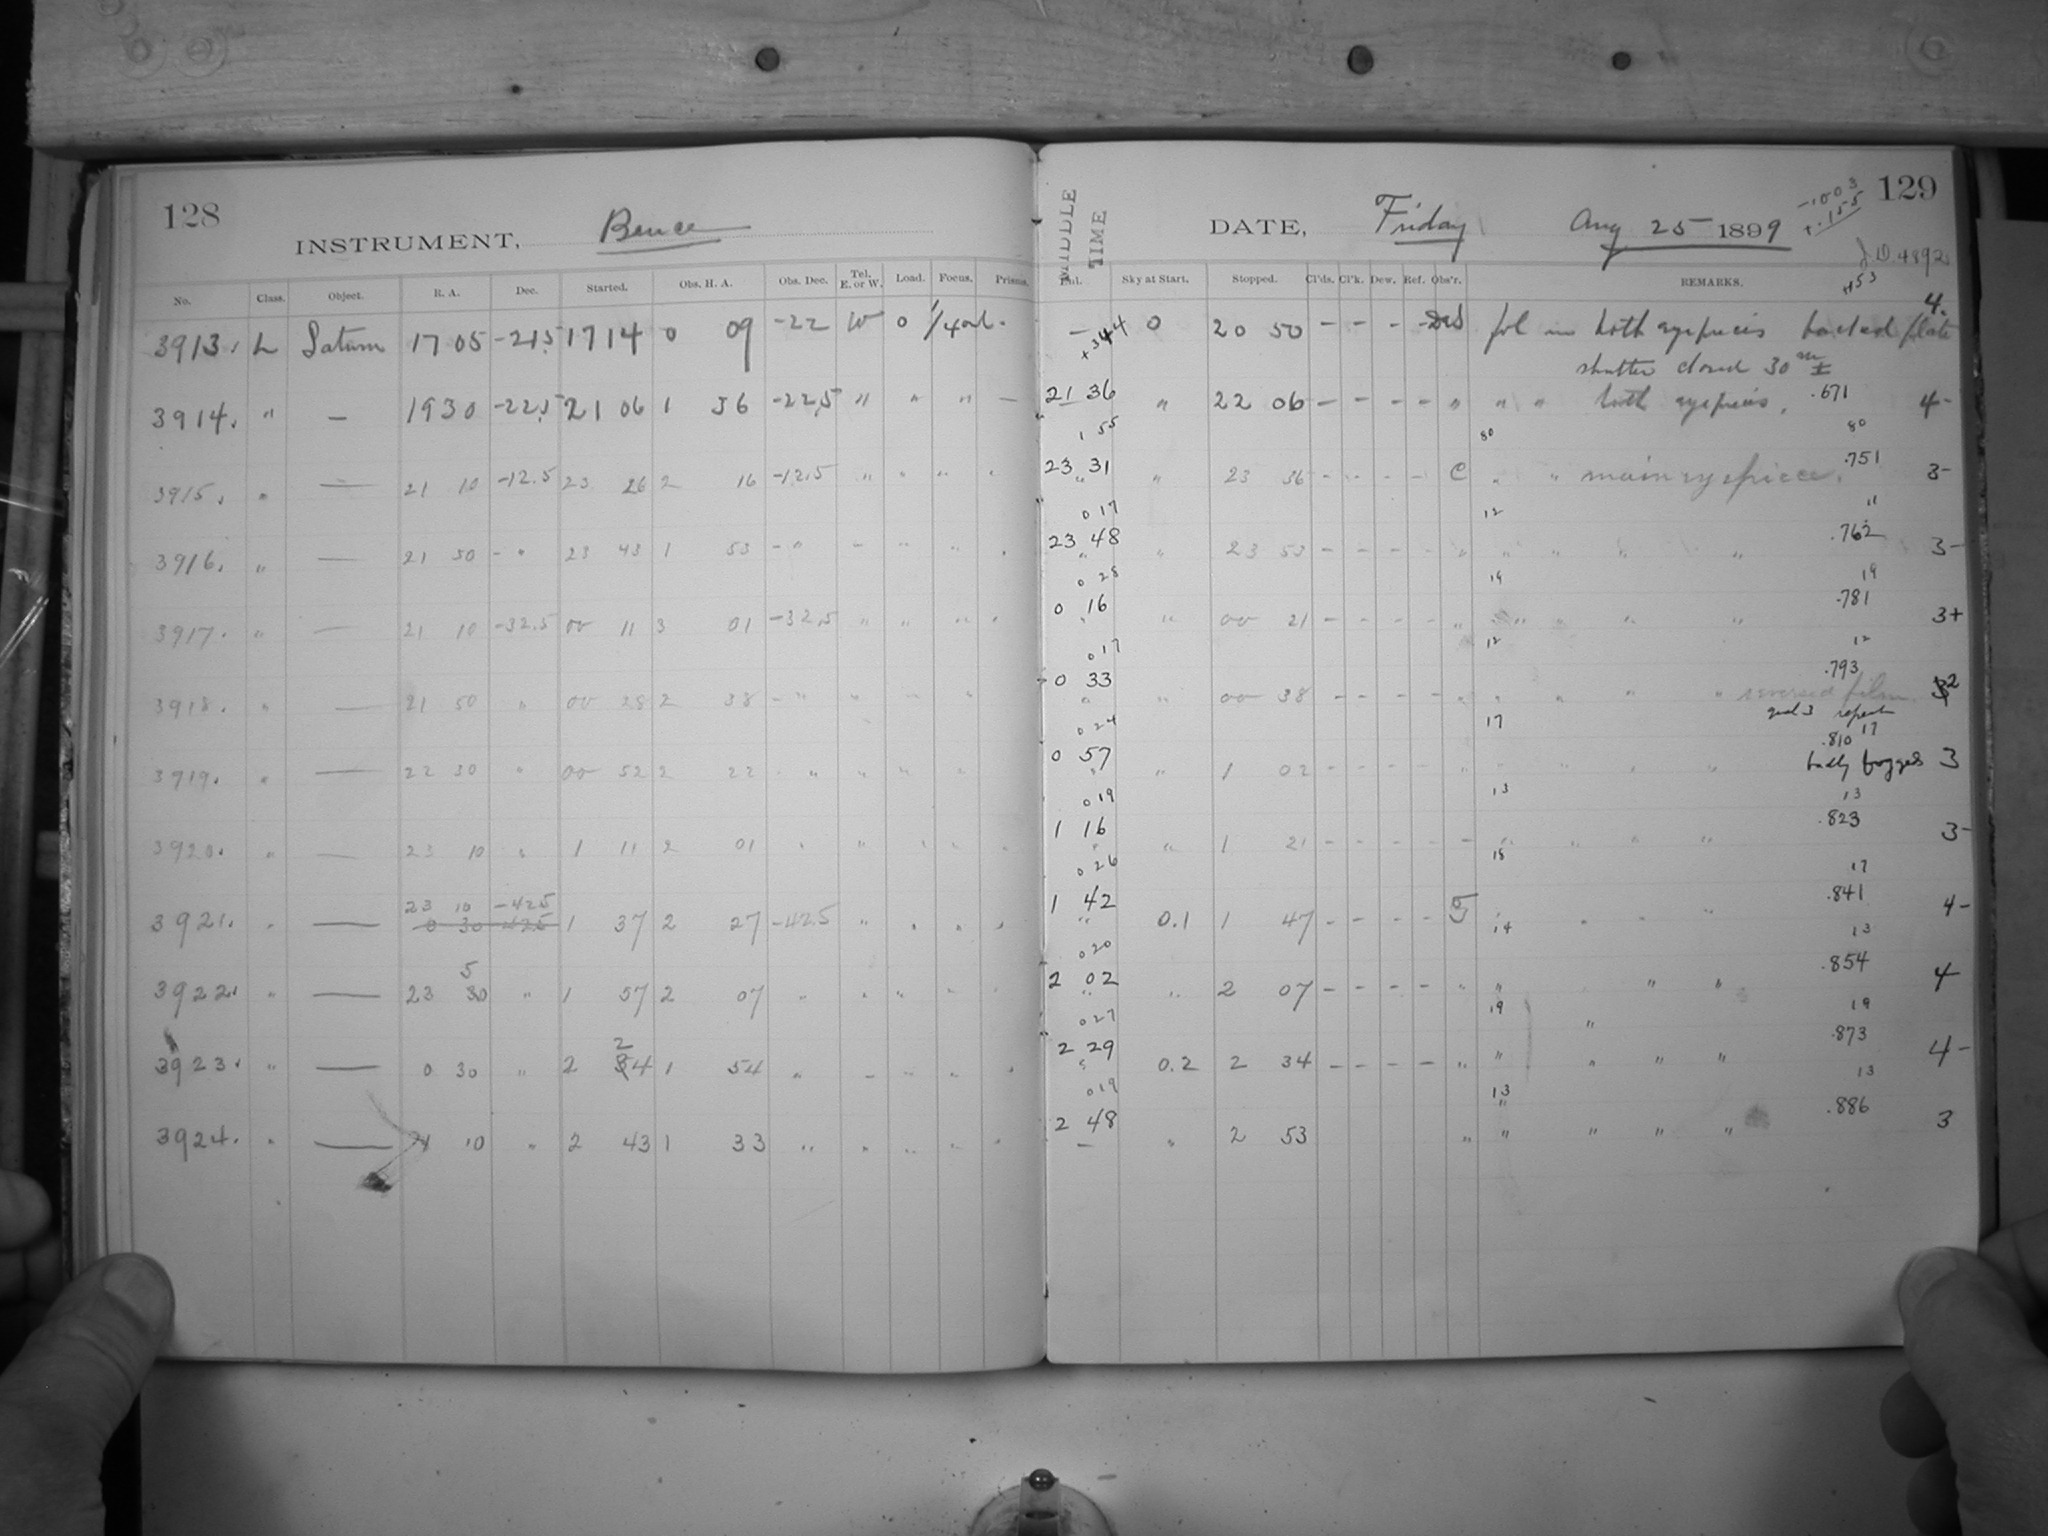 128
INSTRUMENT, Bruce
No. Class. Object. R. A. Dec. Started. Obs. H. A. Obs. Dec. Tel. E. or W. Load. Focus. Prisms.
3913. L Saturn 17 05 -21.5 17 14 0 09 -22 W 0
3914. " — 19 30 -22.5 21 06 1 36 -22.5 " " " —
3915. " — 21 10 -12.5 23 26 2 16 -12.5 " " " "
3916. " — 21 50 - " 23 43 1 53 - " " " " "
3917. " — 21 10 -32.5 00 11 3 01 -32.5 " " " "
3918. " — 21 50 " 00 28 2 38 - " " " "
3919. " — 22 30 " 00 52 2 22 " " " "
3920. " — 23 10 " 1 11 2 01 " " " " "
23 10 -42.5
3921. " — 0 30 -42.5 1 37 2 27 -42.5 " " " "
5
3922. " — 23 30 " 1 57 2 07 " " " " "
2
3923. " — 0 30 " 2 34 1 54 " " " " "
3924. " — 10 " 2 43 1 33 " " " " "
129
MIDDLE TIME
DATE, Friday Aug 25 1899
-.003
+.155
J.D. 4892
+53
Sky at Start. Stopped. Cl'ds. Cl'k. Dew. Ref. Obs'r. REMARKS.
— 0 20 50 - - - - fol in both eyepieces backed plate 4.
+344
shutter closed 30 m ±
21 36 " 22 06 - - - - " " " both eyepieces. .671 4-
1 55 80 80
23 31 " 23 36 - - - - C " " main eyepiece. .751 3-
0 17 12 11
23 48 " 23 53 - - - - " " " " " .762 3-
0 28 19 19
0 16 " 00 21 - - - - " " " " " .781 3+
0 17 12 12
.793
0 33 " 00 38 - - - - " " " " " reversed film 2
repeat
0 24 17 17
.810
0 57 " 1 02 - - - - " " " " badly fogged 3
0 19 13 13
1 16 " 1 21 - - - - - " " " " .823 3-
0 26 18 17
1 42 0.1 1 47 - - - - " " " .841 4-
0 20 14 13
2 02 " 2 07 - - - - " " " " .854 4
0 27 19 19
2 29 0.2 2 34 - - - - " " " " " .873 4-
0 19 13 13
2 48 " 2 53 " " " " " .886 3